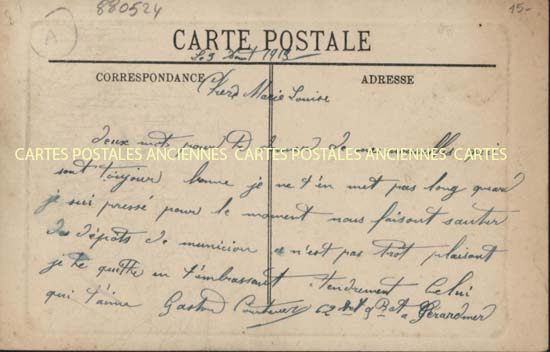 880524
15-
A
CARTE POSTALE
Le 3 Aout 1913
CORRESPONDANCE
ADRESSE
Cherd Marie Louise
deux mot pour te de mes nouvelles qui
CARTES POSTALES ANCIENNES CARTES POSTALES ANCIENNES CARTES
sont toujour bonne je ne t'en met pas long quard
je sui pressé pour le moment nous faisont sauter
des dépots de munision e n'est pas trot plaisant
je te quitte en t'embrassant tendrement Celui
qui t'aime Gaston 62 9 Bat a Gérardmer